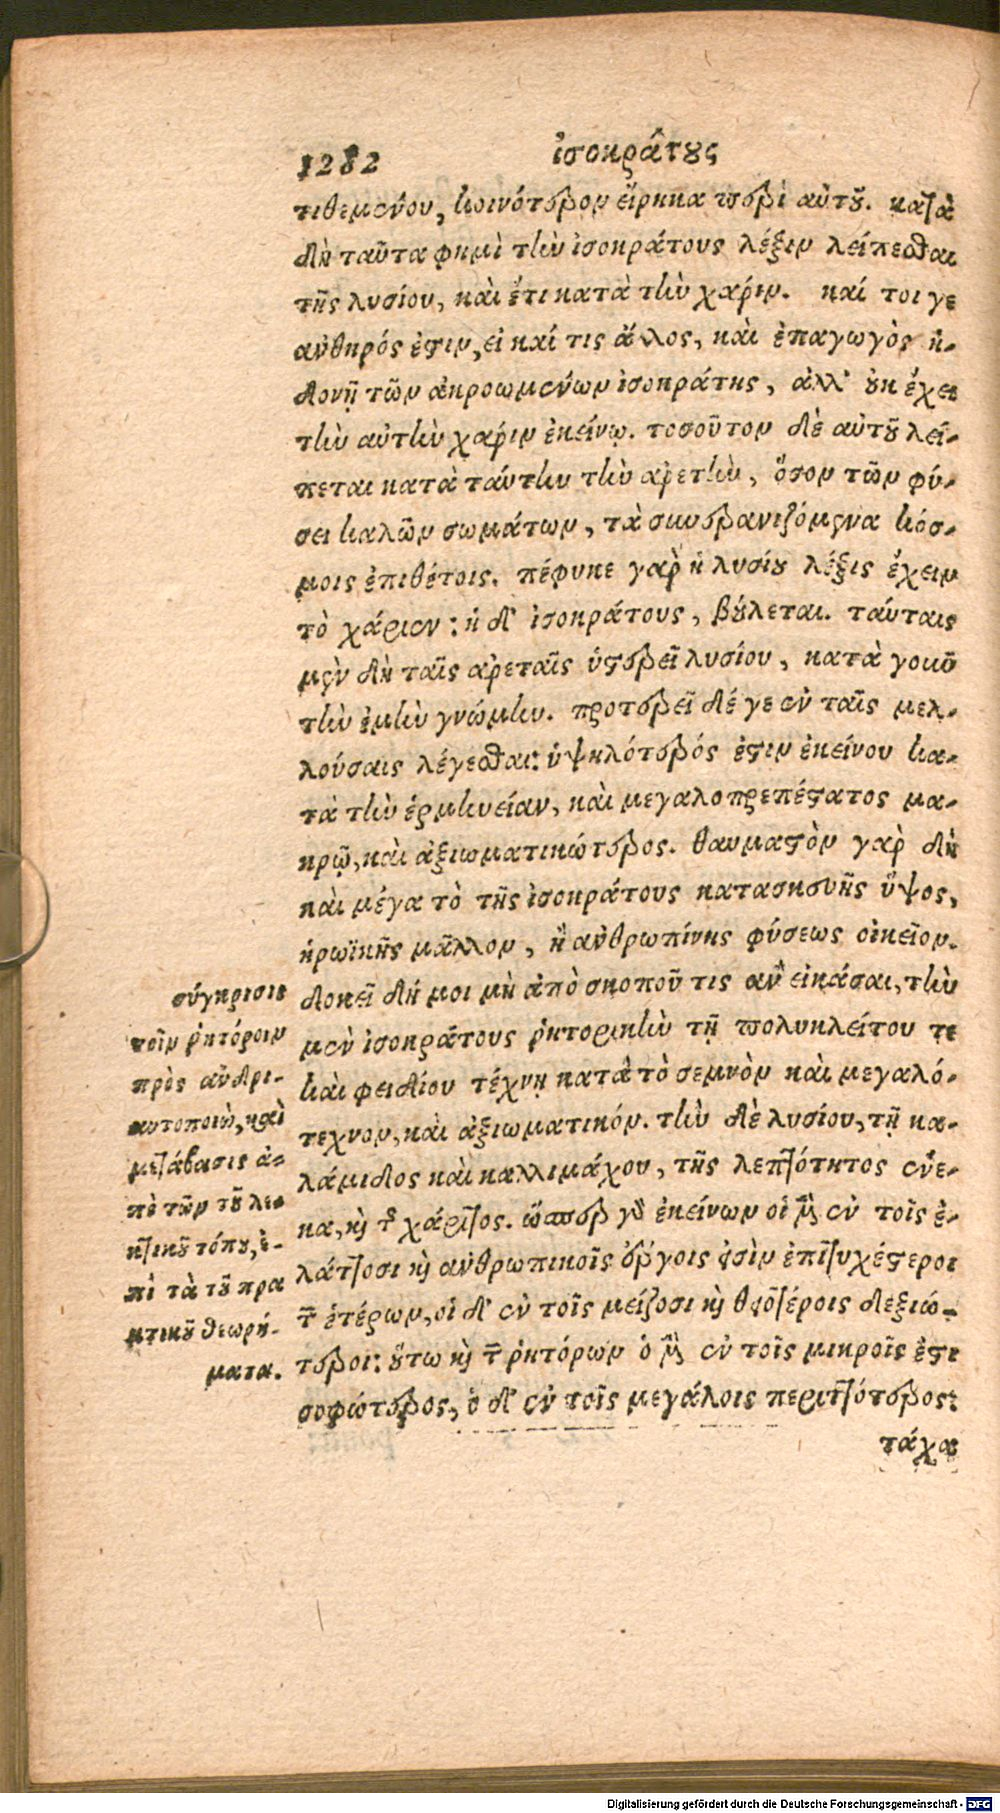 1282 ἰσοκράτους
τιθεμένου, κοινότερον εἴρηκα περὶ αὐτοῦ. κατὰ
δὴ ταῦτα φημὶ τὴν ἰσοκράτους λέξιν λείπεσθαι
τῆς λυσίου, καὶ ἔτι κατὰ τὴν χάριν. καί τοι γε
ἀνθηρός ἐστιν, εἰ καί τις ἄλλος, καὶ ἐπαγωγὸς ἡ-
δονῇ τῶν ἀκροωμένων ἰσοκράτης, ἀλλ' οὐκ ἔχει
τὴν αὐτὴν χάριν ἐκείνῳ. τοσοῦτον δὲ αὐτοῦ λεί-
πεται κατὰ ταύτην τὴν ἀρετὴν, ὅσον τῶν φύ-
σει καλῶν σωμάτων, τὰ συνερανιζόμενα κόσ-
μοις ἐπιθέτοις. πέφυκε γὰρ ἡ λυσίου λέξις ἔχειν
τὸ χάριεν: ἡ δ' ἰσοκράτους, βούλεται. ταύταις
μὲν δὴ ταῖς ἀρεταῖς ὑστερεῖ λυσίου, κατὰ γοῦν
τὴν ἐμὴν γνώμην. προτερεῖ δέ γε ἐν ταῖς μελ-
λούσαις λέγεσθαι: ὑψηλότερός ἐστιν ἐκείνου κα-
τὰ τὴν ἑρμηνείαν, καὶ μεγαλοπρεπέστατος μα-
κρῷ, καὶ ἀξιωματικώτερος. θαυμαστὸν γὰρ δὴ
καὶ μέγα τὸ τῆς ἰσοκράτους κατασκευῆς ὕψος,
ἡρωϊκῆς μᾶλλον, ἢ ἀνθρωπίνης φύσεως οἰκεῖον.
δοκεῖ δή μοι μὴ ἀπὸ σκοποῦ τις ἂν εἰκάσαι, τὴν
μὲν ἰσοκράτους ῥητορικὴν τῇ πολυκλείτου τε
καὶ φειδίου τέχνῃ κατὰ τὸ σεμνὸν καὶ μεγαλό-
τεχνον, καὶ ἀξιωματικόν. τὴν δὲ λυσίου, τῇ κα-
λάμιδος καὶ καλλιμάχου, τῆς λεπτότητος ἕνε-
κα, καὶ τῆς χάριτος. ὥσπερ γὰρ ἐκείνων οἱ μὲν ἐν τοῖς ἐ-
λάττοσι καὶ ἀνθρωπικοῖς ἔργοις εἰσὶν ἐπιτυχέστεροι
τῶν ἑτέρων, οἱ δ' ἐν τοῖς μείζοσι καὶ θειοτέροις δεξιώ-
τεροι: οὕτω καὶ τῶν ῥητόρων ὁ μὲν ἐν τοῖς μικροῖς ἐστι
σοφώτερος, ὁ δ' ἐν τοῖς μεγάλοις περιττότερος:
τάχα
σύγκρισις
τοῖν ῥητόροιν
πρὸς ἀνδρι-
αντοποιὼ, καὶ
μετάβασις ἀ-
πὸ τῶν τοῦ λε-
κτικοῦ τόπου, ἐ-
πὶ τὰ τοῦ πρα
κτικοῦ θεωρή-
ματα.
Digitalisierung gefördert durch die Deutsche Forschungsgemeinschaft - DFG